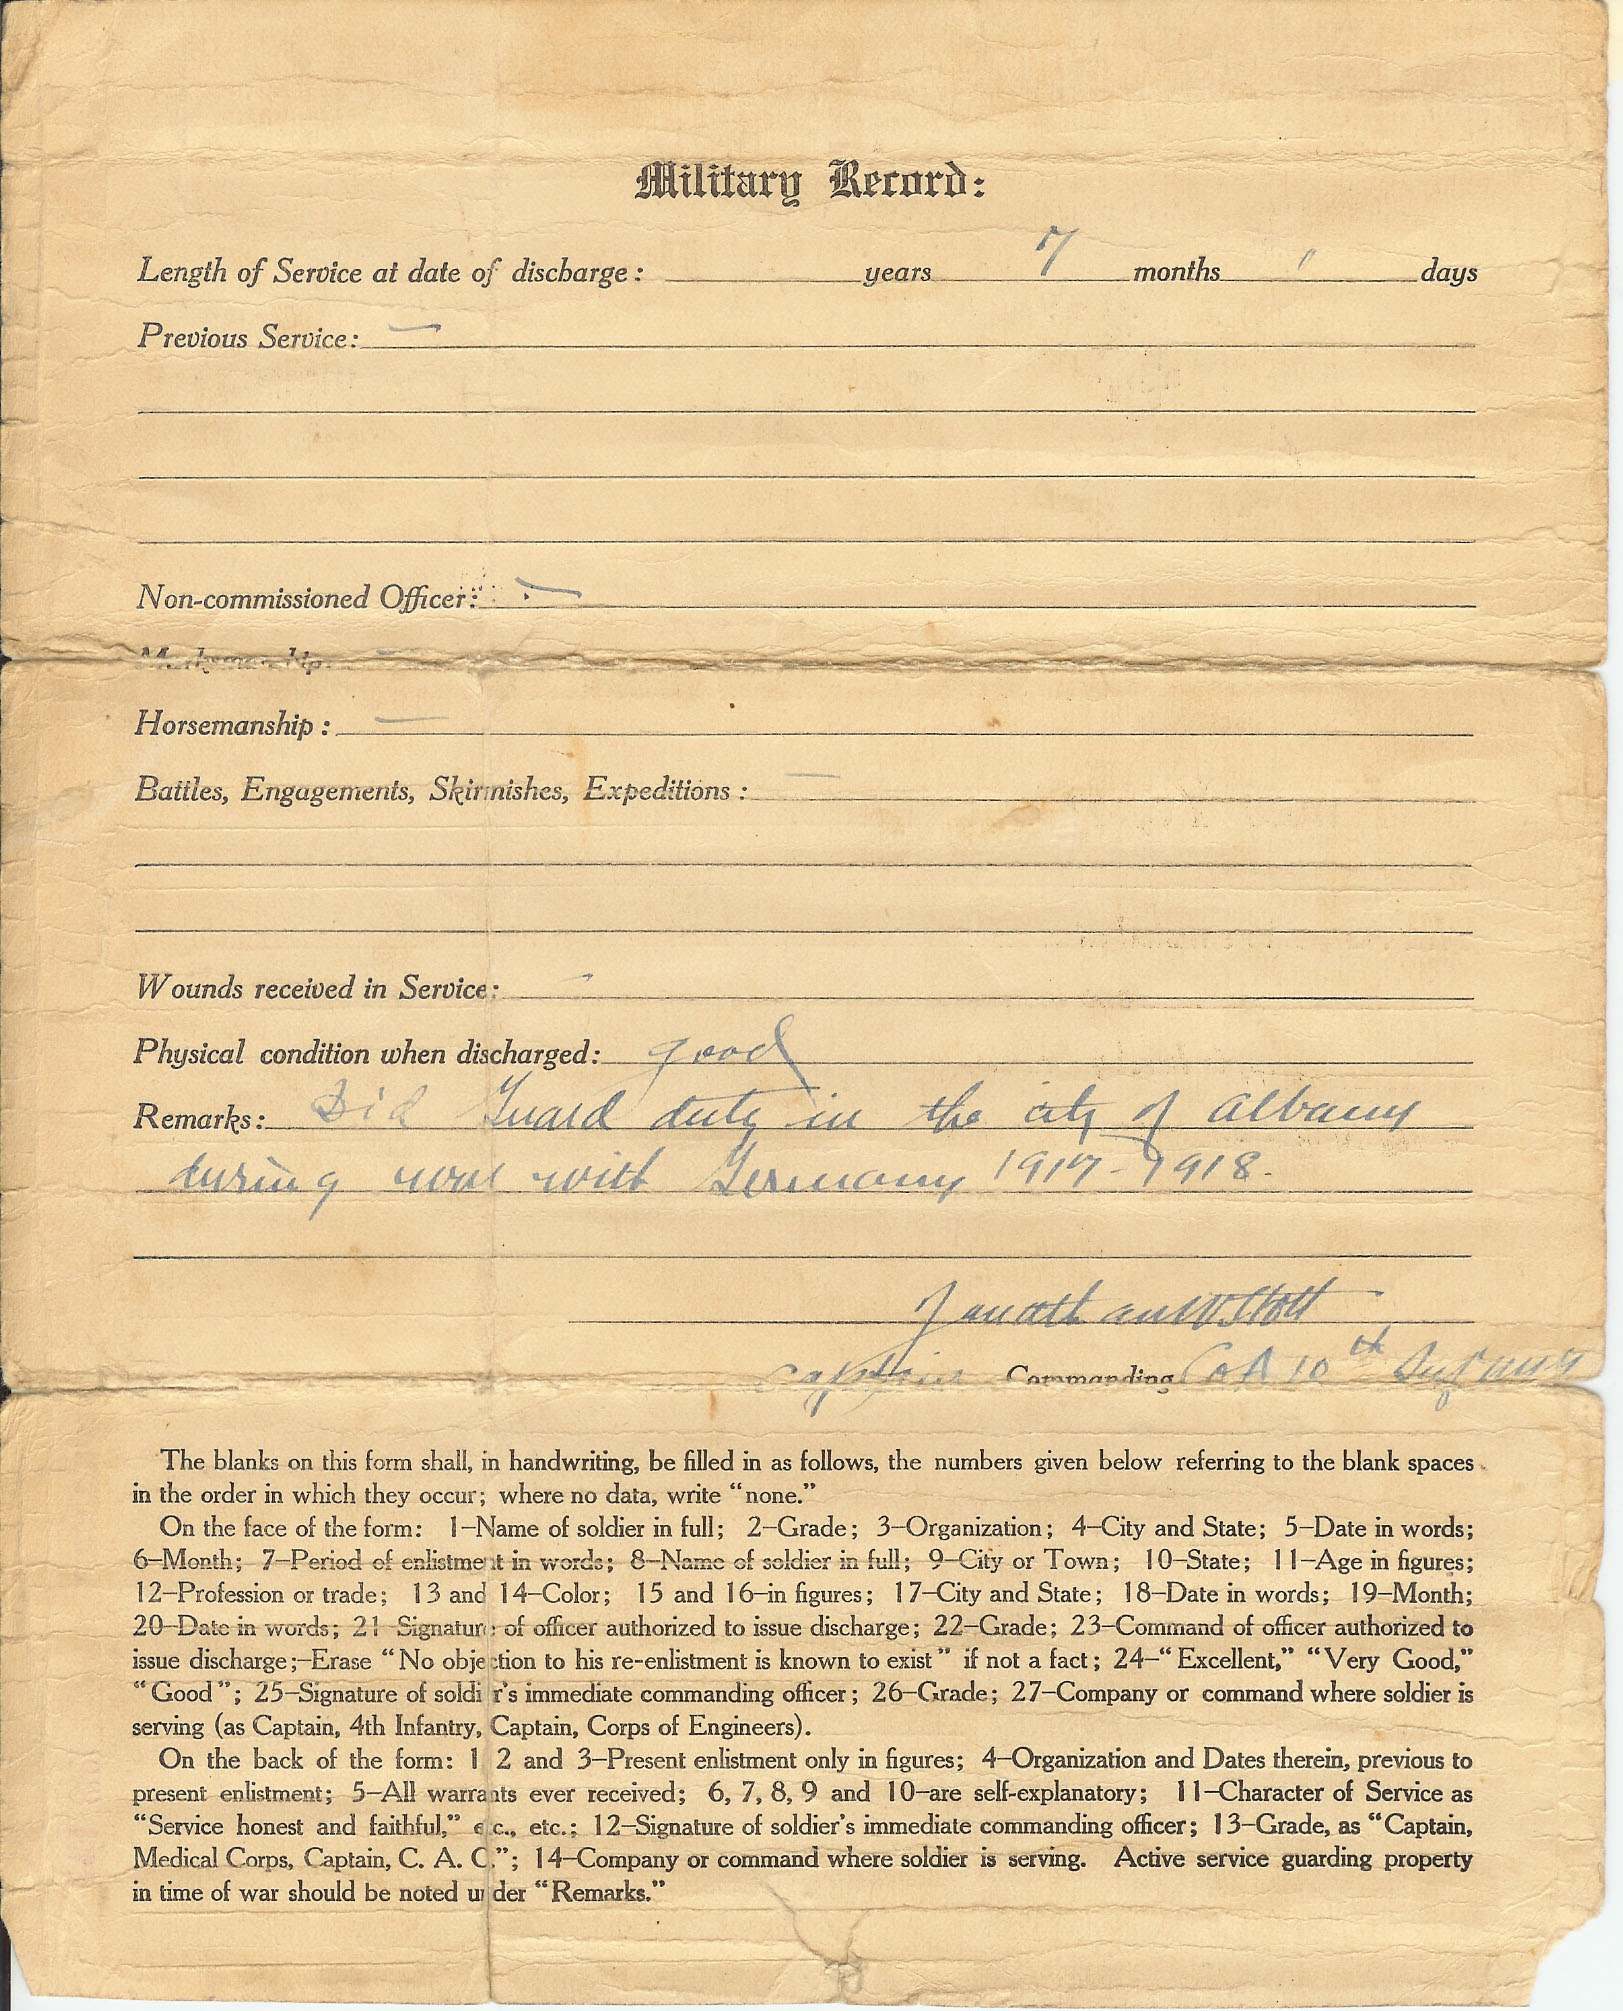 Military Record:
Length of Service at date of discharge: years 7 months days
Previous Service: —
Non-commissioned Officer: —
Marksmanship: —
Horsemanship: —
Battles, Engagements, Skirmishes, Expeditions: —
Wounds received in Service: —
Physical condition when discharged: good
Remarks: Did Guard duty in the city of Albany
during war with Germany 1917-1918.
Captain Commanding Co A 10th Inf
The blanks on this form shall, in handwriting, be filled in as follows, the numbers given below referring to the blank spaces
in the order in which they occur; where no data, write "none."
On the face of the form: 1–Name of soldier in full; 2–Grade; 3–Organization; 4–City and State; 5–Date in words;
6–Month; 7–Period of enlistment in words; 8–Name of soldier in full; 9–City or Town; 10–State; 11–Age in figures;
12–Profession or trade; 13 and 14–Color; 15 and 16–in figures; 17–City and State; 18–Date in words; 19–Month;
20–Date in words; 21–Signature of officer authorized to issue discharge; 22–Grade; 23–Command of officer authorized to
issue discharge;–Erase "No objection to his re-enlistment is known to exist" if not a fact; 24–"Excellent," "Very Good,"
"Good"; 25–Signature of soldier's immediate commanding officer; 26–Grade; 27–Company or command where soldier is
serving (as Captain, 4th Infantry, Captain, Corps of Engineers).
On the back of the form: 1 2 and 3–Present enlistment only in figures; 4–Organization and Dates therein, previous to
present enlistment; 5–All warrants ever received; 6, 7, 8, 9 and 10–are self-explanatory; 11–Character of Service as
"Service honest and faithful," etc., etc.; 12–Signature of soldier's immediate commanding officer; 13–Grade, as "Captain,
Medical Corps, Captain, C. A. C."; 14–Company or command where soldier is serving. Active service guarding property
in time of war should be noted under "Remarks."